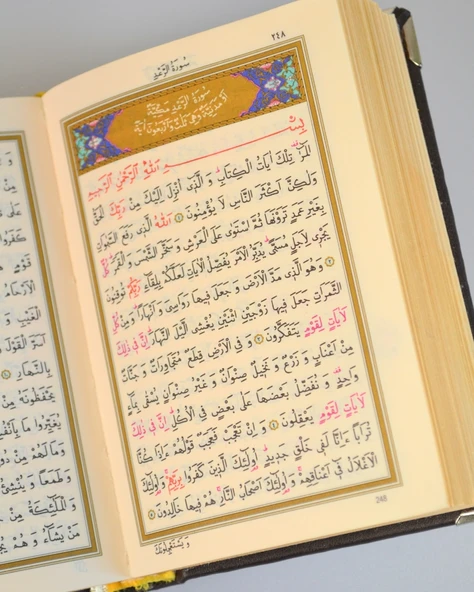 ٢٤٨
سُورَةُ الرَّعْدِ
سُورَةُ الرَّعْدِ مَكِّيَّةٌ
اَوْ مَدَنِيَّةٌ وَهِيَ ثَلٰثٌ وَاَرْبَعُونَ اٰيَةً
بِسْمِ اللّٰهِ الرَّحْمٰنِ الرَّحِيمِ
الٓمٓرٰ تِلْكَ اٰيَاتُ الْكِتَابِ وَ الَّذٓى اُنْزِلَ اِلَيْكَ مِنْ رَبِّكَ الْحَقُّ
وَلٰكِنَّ اَكْثَرَ النَّاسِ لَا يُؤْمِنُونَ ١ اَللّٰهُ الَّذِى رَفَعَ السَّمٰوَاتِ
بِغَيْرِ عَمَدٍ تَرَوْنَهَا ثُمَّ اسْتَوٰى عَلَى الْعَرْشِ وَ سَخَّرَ الشَّمْسَ وَ الْقَمَرَ كُلٌّ
يَجْرِى لِاَجَلٍ مُسَمًّى يُدَبِّرُ الْاَمْرَ يُفَصِّلُ الْاٰيَاتِ لَعَلَّكُمْ بِلِقَٓاءِ رَبِّكُمْ تُوقِنُونَ
٢ وَ هُوَ الَّذِى مَدَّ الْاَرْضَ وَ جَعَلَ فِيهَا رَوَاسِىَ وَ اَنْهَارًا وَ مِنْ كُلِّ
الثَّمَرَاتِ جَعَلَ فِيهَا زَوْجَيْنِ اثْنَيْنِ يُغْشِى الَّيْلَ النَّهَارَ اِنَّ فِى ذٰلِكَ
لَاٰيَاتٍ لِقَوْمٍ يَتَفَكَّرُونَ ٣ وَ فِى الْاَرْضِ قِطَعٌ مُتَجَاوِرَاتٌ وَ جَنَّاتٌ
مِنْ اَعْنَابٍ وَ زَرْعٌ وَ نَخِيلٌ صِنْوَانٌ وَ غَيْرُ صِنْوَانٍ يُسْقٰى بِمَٓاءٍ
وَاحِدٍ وَ نُفَضِّلُ بَعْضَهَا عَلٰى بَعْضٍ فِى الْاُكُلِ اِنَّ فِى ذٰلِكَ
لَاٰيَاتٍ لِقَوْمٍ يَعْقِلُونَ ٤ وَ اِنْ تَعْجَبْ فَعَجَبٌ قَوْلُهُمْ ءَاِذَا كُنَّا
تُرَابًا ءَاِنَّا لَفِى خَلْقٍ جَدِيدٍ اُولٰٓئِكَ الَّذِينَ كَفَرُوا بِرَبِّهِمْ وَ اُولٰٓئِكَ
الْاَغْلَالُ فٓى اَعْنَاقِهِمْ وَ اُولٰٓئِكَ اَصْحَابُ النَّارِ هُمْ فِيهَا خَالِدُونَ ٥
وَ يَسْتَعْجِلُونَكَ
248
عَلٰى
كَفَرُوا
قَوْمٍ
الْاَرْحَامُ
الْغَيْبِ وَ
اَسَرَّ الْقَوْلَ
بِالنَّهَارِ
يَحْفَظُونَهُ مِنْ
يُغَيِّرُوا مَا بِاَنْفُ
وَمَا لَهُمْ مِنْ دُو
وَ طَمَعًا وَ يُنْشِئُ
وَ الْمَلٰٓئِكَةُ مِنْ
مَنْ يَشَٓاءُ وَ هُمْ يُجَ